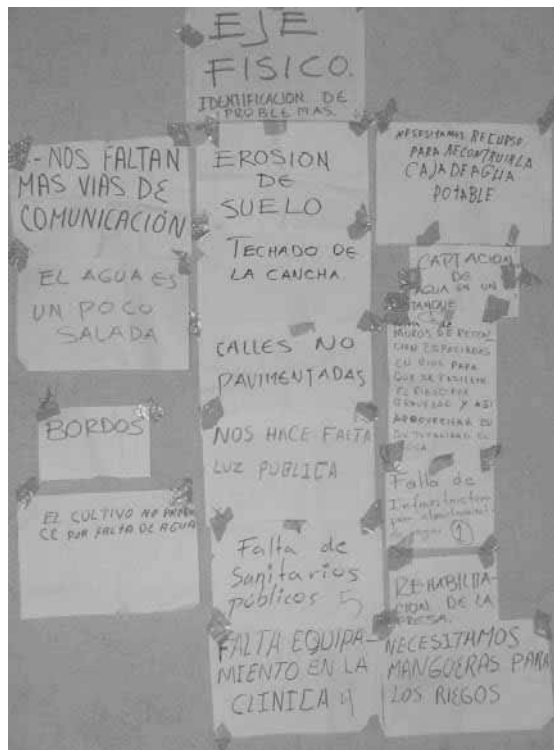 EJE
FISICO.
IDENTIFICACION DE
PROBLEMAS.
- NOS FALTAN
MAS VIAS DE
COMUNICACIÓN
EL AGUA ES
UN POCO
SALADA
BORDOS
EL CULTIVO NO
CE POR FALTA DE AGUA
EROSION
DE
SUELO
TECHADO DE
LA CANCHA.
CALLES NO
PAVIMENTADAS
NOS HACE FALTA
LUZ PUBLICA
Falta de
Sanitarios
públicos 5
FALTA EQUIPA-
MIENTO EN LA
CLINICA 4
NESESITAMOS RECURSO
PARA RECONTRUIR LA
CAJA DE AGUA
POTABLE
CAPTACION
DE
AGUA EN UN
TANQUE
MUROS DE RETEN
CION ESPACIADAS
EN RIOS PARA
QUE SE FASILITE
EL RIEGO POR
GRAVEDAD Y ASI
APROVECHAR EN
SU TOTALIDAD EL
AGUA
Falta de
para
de agua 1
REHABILITA-
CION DE LA
PRESA.
NECESITAMOS
MANGUERAS PARA
LOS RIEGOS